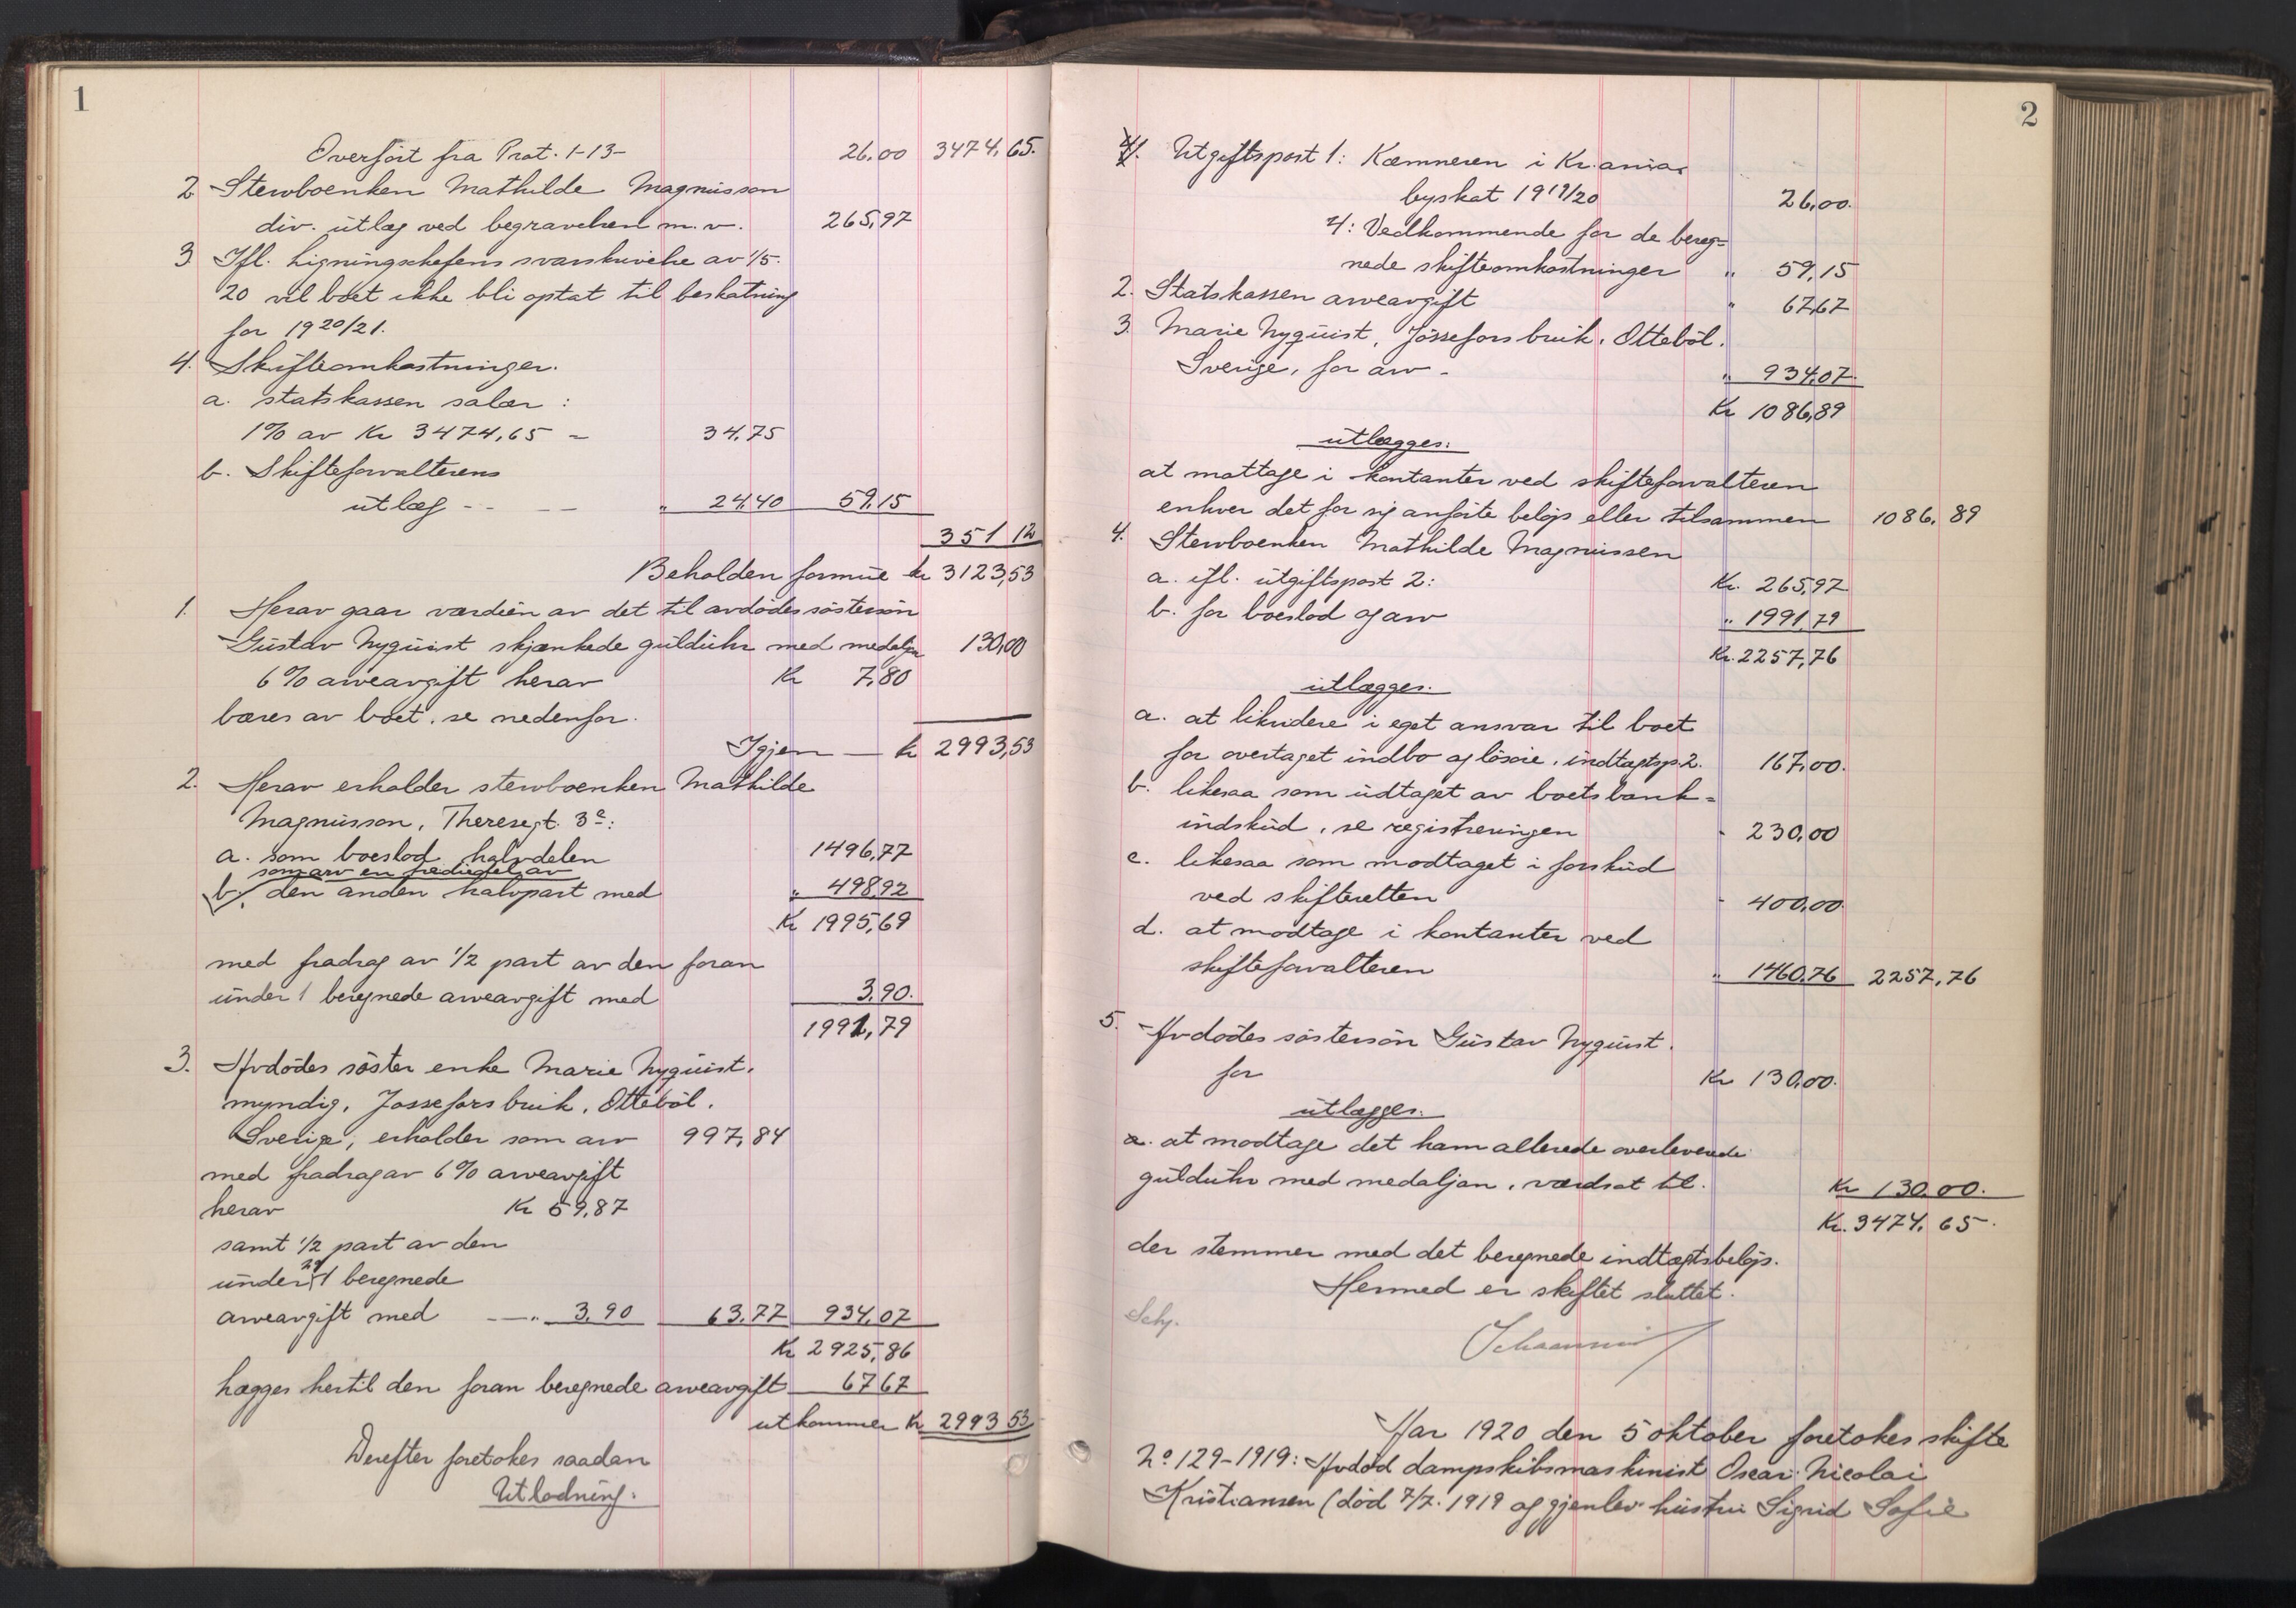 1
Overført fra Prot. 1-13- 26,00 3474,65.
2 Stervboenken Mathilde Magnusson
div. utlæg ved begravelsen m.v. 265,97
3 Ifl. Ligningschefens svarskrivelse av 1/5.
20 vil boet ikke bli optat til beskatning
for 1920/21.
4. Skifteomkostninger.
a. statskassen salær :
1% av Kr 3474,65 - 34,75
b. Skifteforvalterens
utlæg - - - - „ 24,40 59,15
351 12
Beholden formue kr 3123,53
1. Herav gaar værdien av det til avdødes søstersøn
Gustav Nyquist skjænkede gulduhr med medaljon 130,00
6% arveavgift herav Kr 7,80
bæres av boet, se nedenfor.
Igjen — kr 2993,53
2. Herav erholder stervboenken Mathilde
Magnusson, Theresegt. 3c:
a. som boeslod halvdelen 1496,77
som arv en trediedel av
b. den anden halvpart med „ 498,92
Kr 1995,69
med fradrag av 1/2 part av den foran
under 1 beregnede arveavgift med 3,90.
1991,79
3. Avdødes søster enke Marie Nyquist,
myndig, Jossefors bruk, Ottebol,
Sverige, erholder som arv 997,84
med fradrag av 6% arveavgift
herav Kr 59,87
samt 1/2 part av den
under 1 beregnede
arveavgift med —„- 3,90 63,77 934,07
Kr 2925,86
Lægges hertil den foran beregnede arveavgift 67 67
utkommer Kr 2993 53
Derefter foretokes saadan
Utlodning.
2
1. Utgiftspost 1: Kæmneren i Kr.ania.
byskat 1919/20 26,00.
4: Vedkommende for de bereg=
nede skifteomkostninger „ 59,15
2. Statskassen arveavgift „ 67,67
3. Marie Nyquist, Jössefors bruk, Ottebol,
Sverige, for arv - „ 934,07.
Kr 1086,89
utlægges:
at mottage i kontanter ved skifteforvalteren
enhver det for sig anførte beløp eller tilsammen 1086,89
4. Stervboenken Mathilde Magnussen
a. ifl. utgiftspost 2: Kr. 265,97
b. for boeslod og arv „ 1991,79
Kr. 2257,76
utlægges:
a. at likvidere i eget ansvar til boet
for overtaget indbo og løsøre, indtægtsp. 2. 167,00.
b. likesaa som udtaget av boets bank=
indskud, se registreringen - 230,00
c. likesaa som modtaget i forskud
ved skifteretten - 400,00.
d. at modtage i kontanter ved
skifteforvalteren „ 1460,76 2257,76
5. Avdødes søstersøn Gustav Nyquist.
for Kr 130,00.
utlægges:
a. at modtage det ham allerede overleverede
gulduhr med medaljon, værdsat til. Kr 130,00.
Kr. 3474,65.
der stemmer med det beregnede indtægtsbeløp.
Hermed er skiftet sluttet.
Aar 1920 den 5 oktober foretokes skifte
No 129-1919: Avdød dampskibsmaskinist Oscar Nicolai
Kristiansen (død 7/7. 1919 og gjenlev. hustru Sigrid Sofie